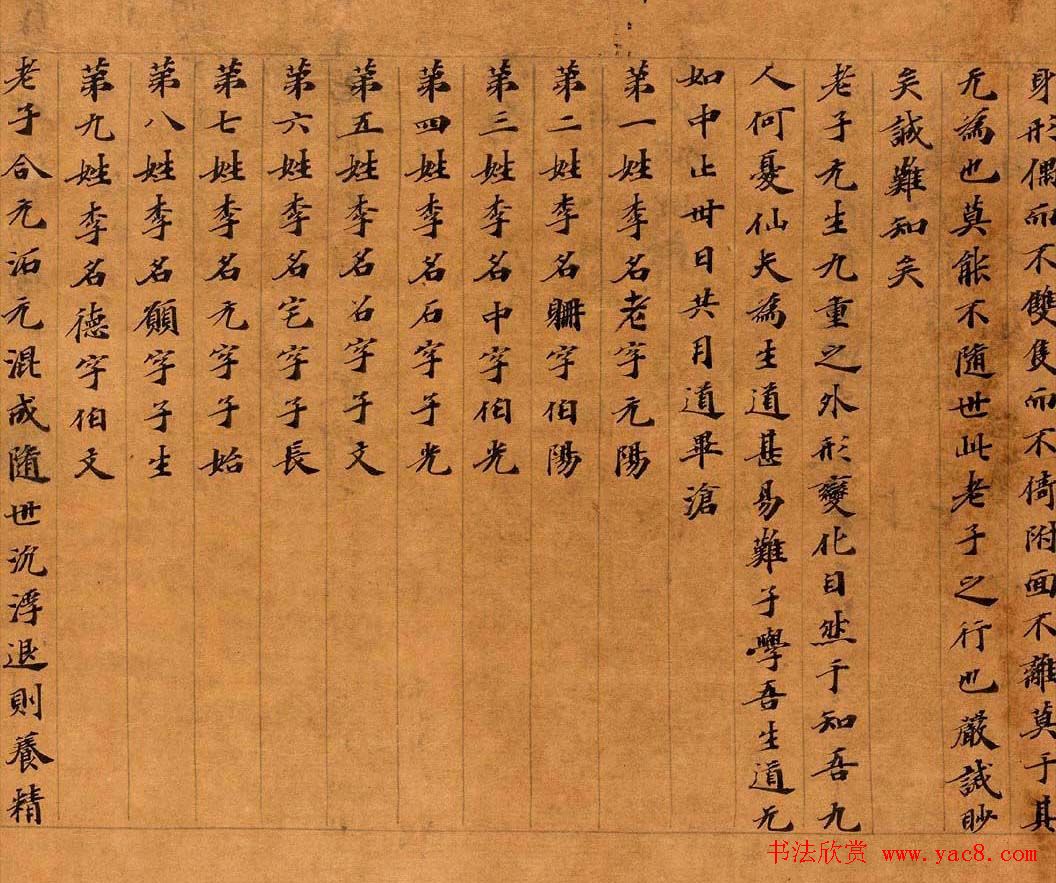 身形偶而不雙隻而不倚附面不離莫于其
无為也莫能不隨世此老子之行也嚴誡眇
矣誠難知矣
老子元生九重之外形變化自然于知吾九
人何憂仙夫為生道甚易難子學吾生道无
如中止卅日共月道畢滄
第一姓李名老字元陽
第二姓李名聃字伯陽
第三姓李名中字伯光
第四姓李名石字子光
第五姓李名石字子文
第六姓李名宅字子長
第七姓李名元字子始
第八姓李名願字子生
第九姓李名德字伯文
老子合元沰元混成隨世沉浮退則養精
书法欣赏 www.yac8.com